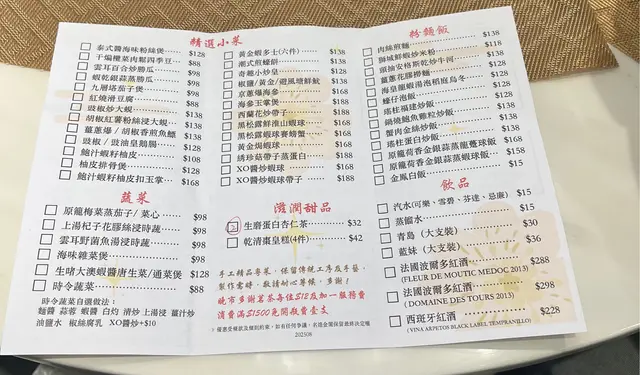 精選小菜
泰式醬海味粉絲煲 $128
干煸欖菜肉鬆四季豆 $88
雲耳百合炒勝瓜 $98
蝦乾銀絲蒸勝瓜 $98
九層塔茄子煲 $98
紅燒滑豆腐 $88
豉椒炒大蜆 $138
胡椒紅薯粉絲浸大蜆 $138
薑蔥爆/胡椒香煎魚鰾 $138
豉椒/豉油皇鵝腸 $128
鮑汁蝦籽柚皮 $128
柚皮排骨煲 $128
鮑汁蝦籽柚皮扣玉掌 $168
黃金蝦多士(六件) $138
潮式煎蠔餅 $138
椒鹽/黃金/避風塘鮮魷 $138
京蔥爆海參 $168
海參玉掌煲 $188
西蘭花炒帶子 $188
黑松露鮮淮山蝦球 $168
黑松露蝦球賽螃蟹 $168
黃金焗蝦球 $168
繡珍菇帶子蒸蛋白 $188
XO醬炒蝦球 $168
XO醬炒蝦球帶子 $188
粉麵飯
肉絲煎麵 $138
獅城鮮蝦炒米粉 $118
頭抽安格斯乾炒牛河 $138
薑蔥花膠撈麵 $128
海皇龍蝦湯泡稻庭烏冬 $138
蠔仔泡飯 $128
瑤柱福建炒飯 $138
鍋燒鮑魚雞粒炒飯 $138
蟹肉金絲炒飯 $138
瑤柱蛋白炒飯 $138
原籠荷香金銀蒜蒸龍躉球飯 $168
原籠荷香金銀蒜蒸蝦球飯 $158
金鳳白飯 $15
蔬菜
原籠梅菜蒸茄子/菜心 $98
上湯杞子花膠絲浸時蔬 $98
雲耳野菌魚湯浸時蔬 $98
海味雜菜煲 $98
生啫大澳蝦醬唐生菜/通菜煲 $128
時令蔬菜 $88
時令蔬菜自選做法:
麵醬 蒜蓉 蝦醬 白灼 清炒 上湯浸 薑汁炒
油鹽水 椒絲腐乳 XO醬炒+$10
滋潤甜品
生磨蛋白杏仁茶 $32
乾清棗皇糕(4件) $42
手工精品粵菜,保留傳統工序及手藝,
製作需時,敬請耐心等候,多謝!
晚市多謝茗茶每位$18及加一服務費
消費滿$1500免開瓶費壹支
202308
飲品
汽水(可樂、雪碧、芬達、忌廉) $15
蒸餾水 $15
青島(大支裝) $30
藍妹(大支裝) $36
法國波爾多紅酒 $288
(FLEUR DE MOUTIC MEDOC 2013)
法國波爾多紅酒 $298
(DOMAINE DES TOURS 2013)
西班牙紅酒 $228
(VINA ARPETOS BLACK LABEL TEMPRANILLO)